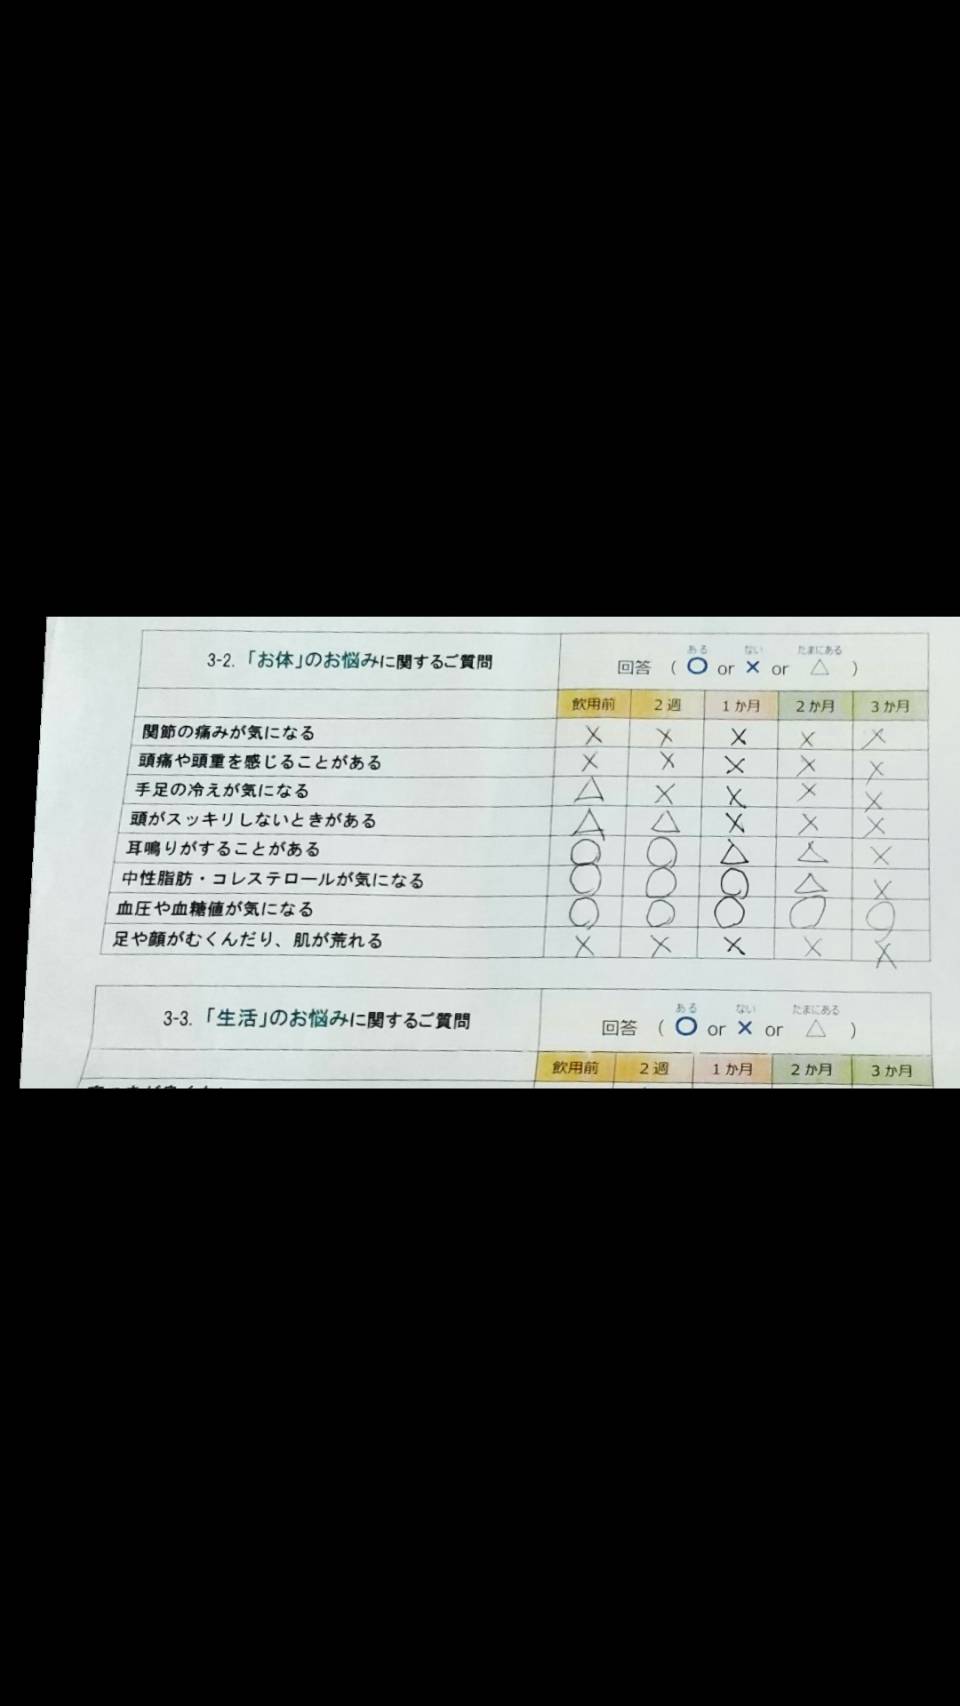 3-2.「お体」のお悩みに関するご質問
ある ない たまにある
回答 ( 〇 or × or △ )
飲用前 2週 1か月 2か月 3か月
関節の痛みが気になる × × × × ×
頭痛や頭重を感じることがある × × × × ×
手足の冷えが気になる △ × × × ×
頭がスッキリしないときがある △ △ × × ×
耳鳴りがすることがある 〇 〇 △ △ ×
中性脂肪・コレステロールが気になる 〇 〇 〇 △ ×
血圧や血糖値が気になる 〇 〇 〇 〇 〇
足や顔がむくんだり、肌が荒れる × × × × ×
3-3.「生活」のお悩みに関するご質問
ある ない たまにある
回答 ( 〇 or × or △ )
飲用前 2週 1か月 2か月 3か月